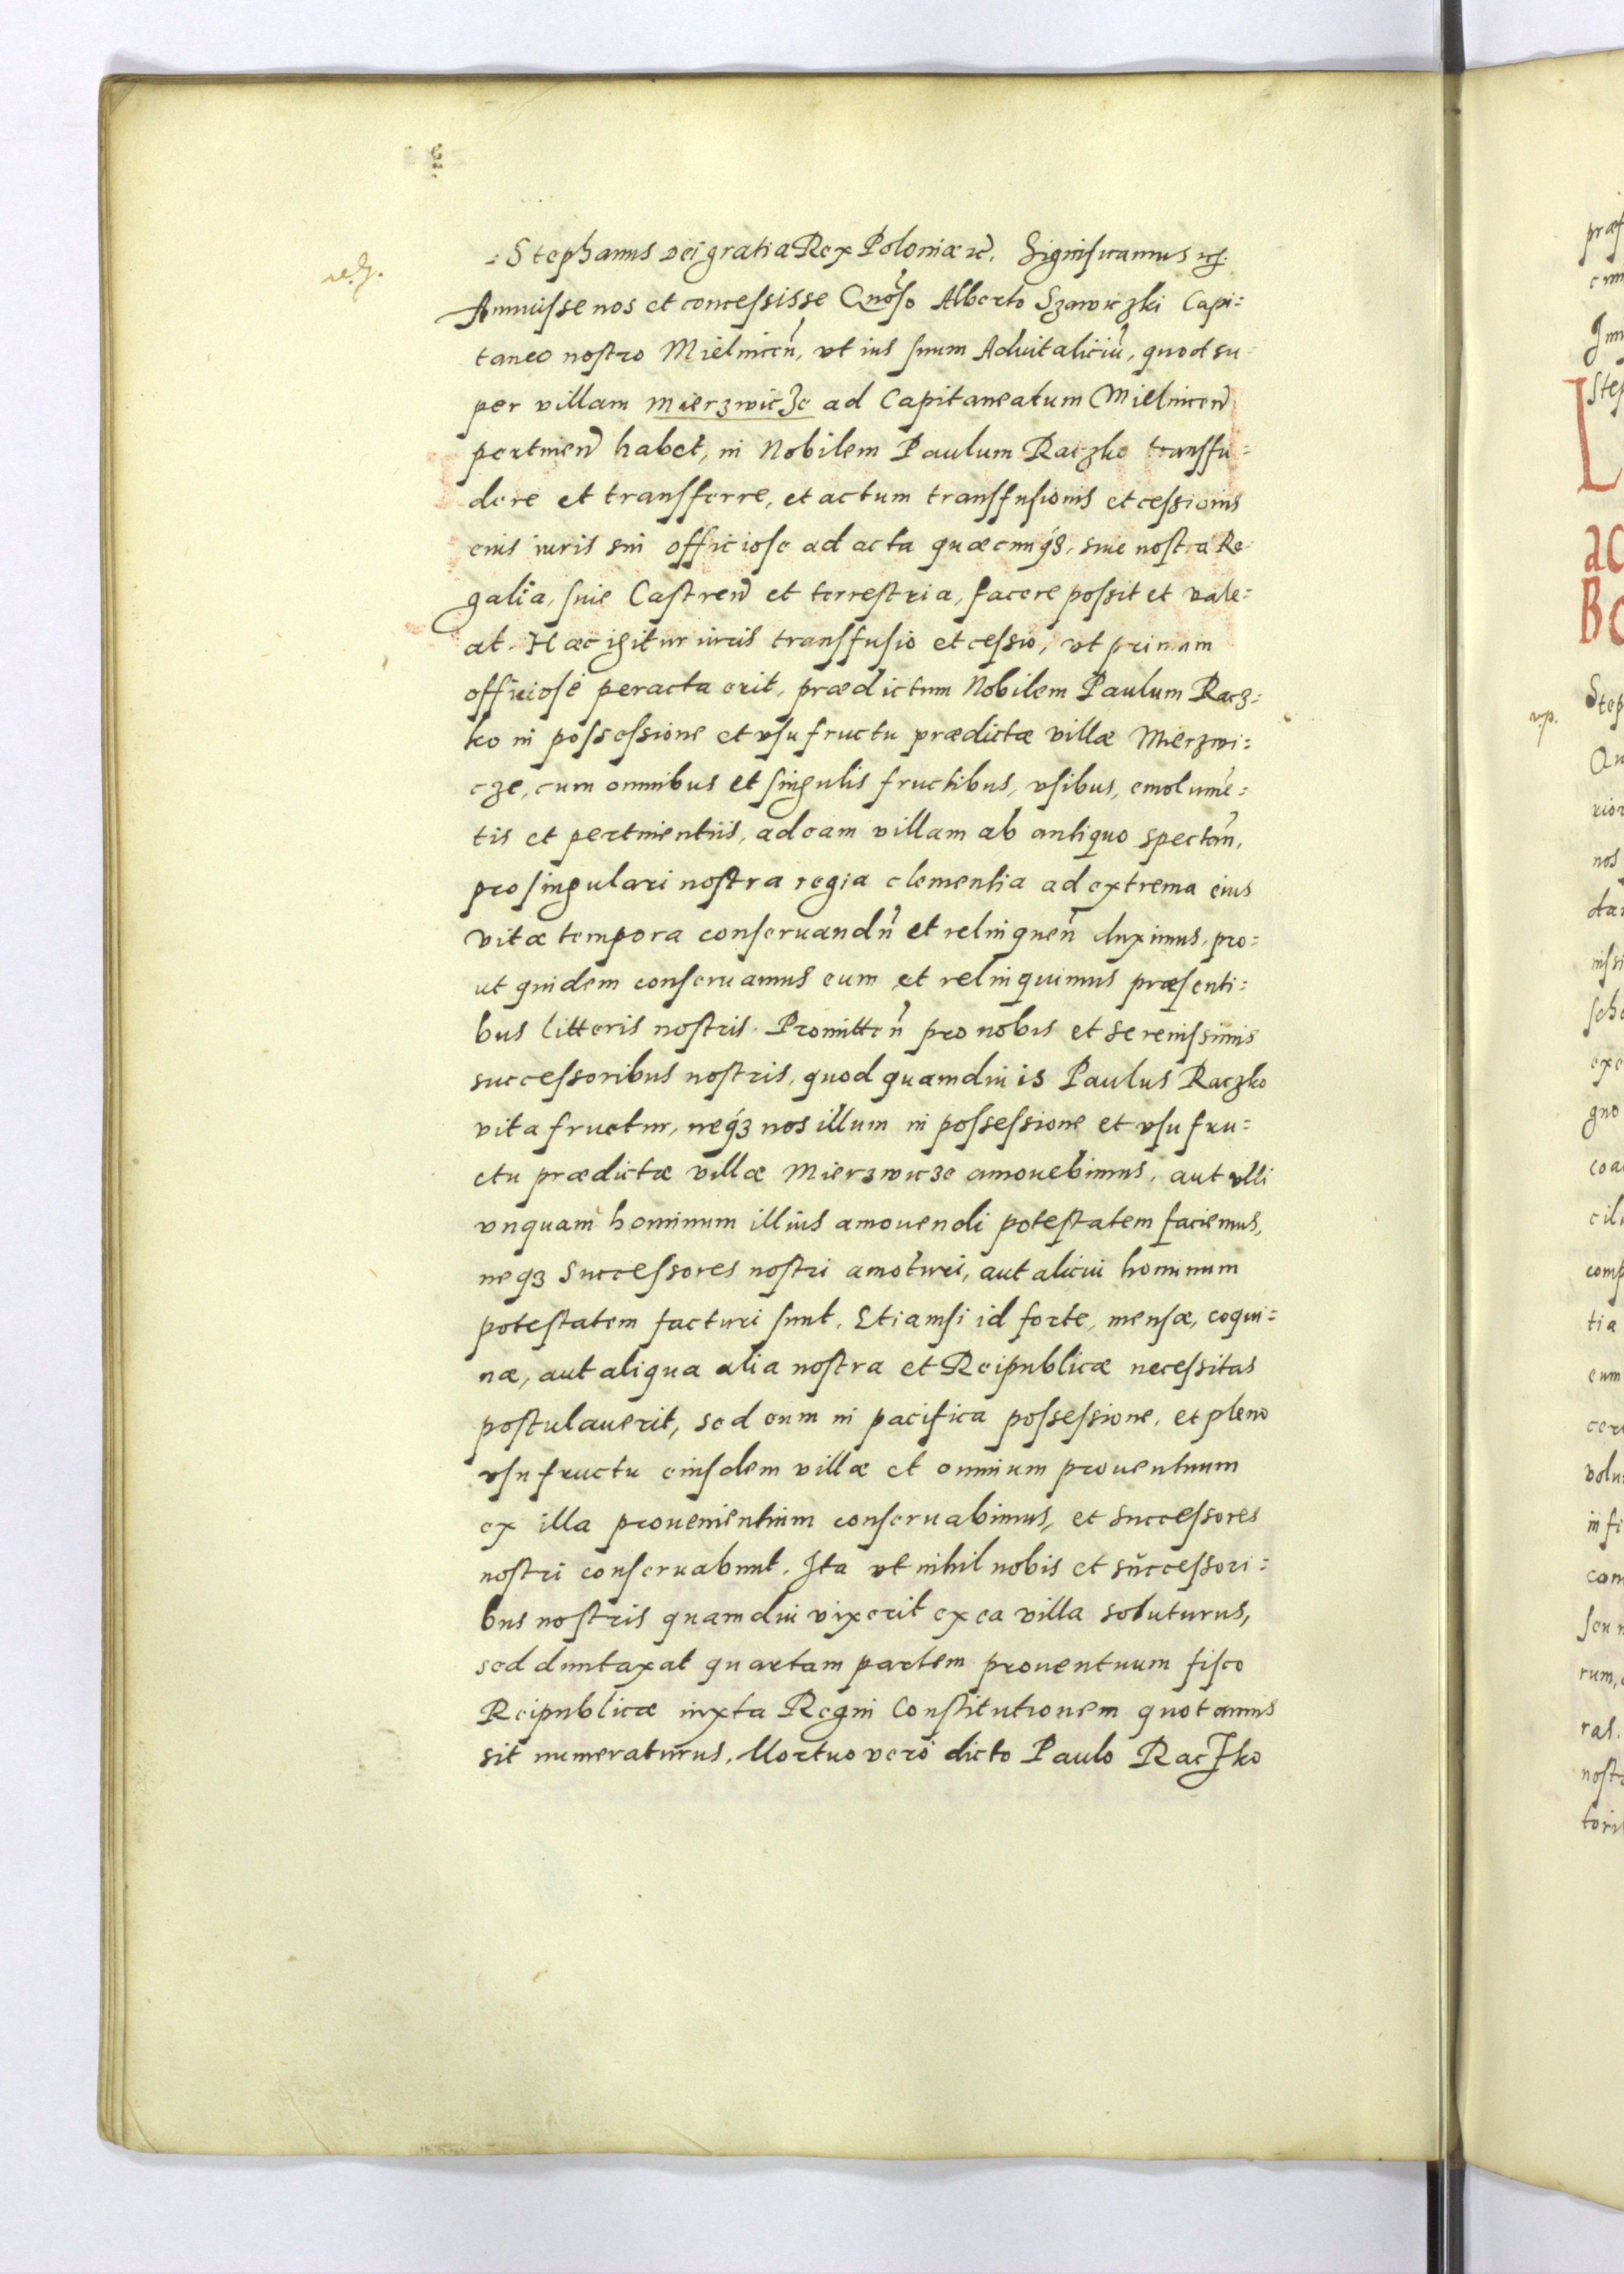 Stephanus Dei gratia Rex Poloniæ etc. Significamus
Annuisse nos et concessisse Gnõso Alberto Szawiczki Capi:
taneo nostro Mielnicen̄, vt ius suum Aduitaliciū, quod su
per villam Mierzwicze ad Capitaneatum Mielnicen̄
pertinen̄ habet, in Nobilem Paulum Raczko transffu:
dere et transfferre, et actum transffusionis et cessionis
eius iuris sui officiose ad acta quæcunqȝ, siue nostra Re
galia, siue Castren̄ et terrestria, facere possit et vale:
at. Hæc igitur iuris transffusio et cessio, vt primum
officiosé peracta erit, prædictum Nobilem Paulum Racz:
ko in possessione et vsufructu prædictæ villæ Mierzwi:
cze, cum omnibus et singulis fructibus, vsibus, emolumē:
tis et pertinentiis, ad eam villam ab antiquo spectan̄,
pro singulari nostra regia clementia ad extrema eius
vitæ tempora conseruandn̄ et relinquen̄ duximus, pro:
ut quidem conseruamus eum et relinquimus præsenti:
bus litteris nostris. Promitten̄ pro nobis et serenissimis
successoribus nostris, quod quamdiu is Paulus Raczko
vita fruetur, neqȝ nos illum in possessione et vsufru:
ctu prædictæ villæ Mierzwicze amouebimus, aut vlli
vnquam hominum illius amouendi potestatem faciemus,
neqȝ Successores nostri amoturi, aut alicui hominum
potestatem facturi sunt. Etiamsi id forte, mensæ, coqui:
næ, aut aliqua alia nostra et Reipublicæ necessitas
postulauerit, sed eum in pacifica possessione, et pleno
vsufructu eiusdem villæ et omnium prouentuum
ex illa prouenientium conseruabimus, et successores
nostri conseruabunt. Ita vt nihil nobis et successori:
bus nostris quamdiu vixerit ex ea villa soluturus,
sed duntaxat quartam partem prouentuum fisco
Reipublicæ iuxta Regni Constitutionem quotannis
sit numeraturus. Mortuo veró dicto Paulo Raczko